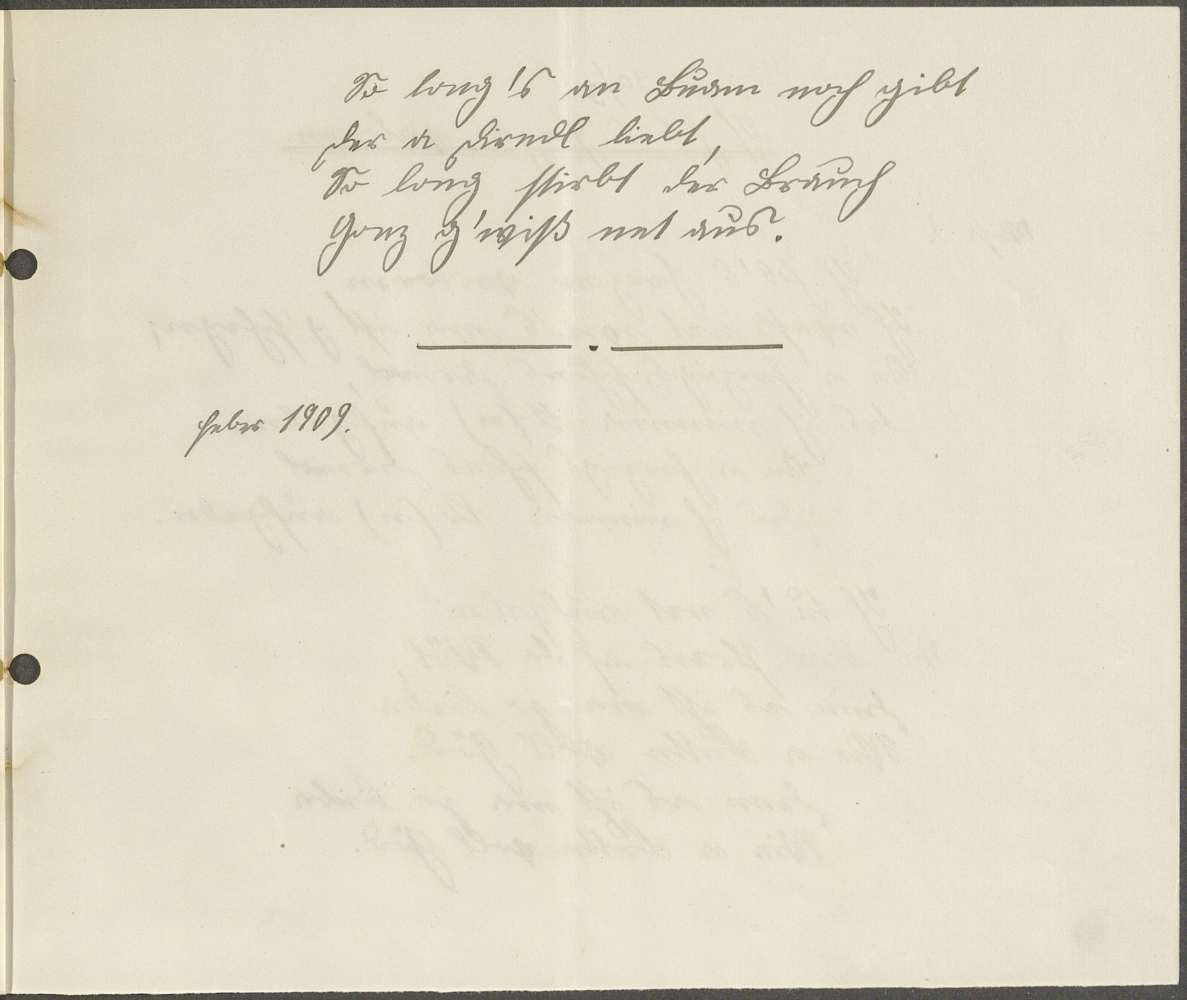 So long's an Buam noch gibt
Der a Dirndl liebt,
So long stirbt der Brauch
Gonz g'wiß net aus.
Feber 1909.